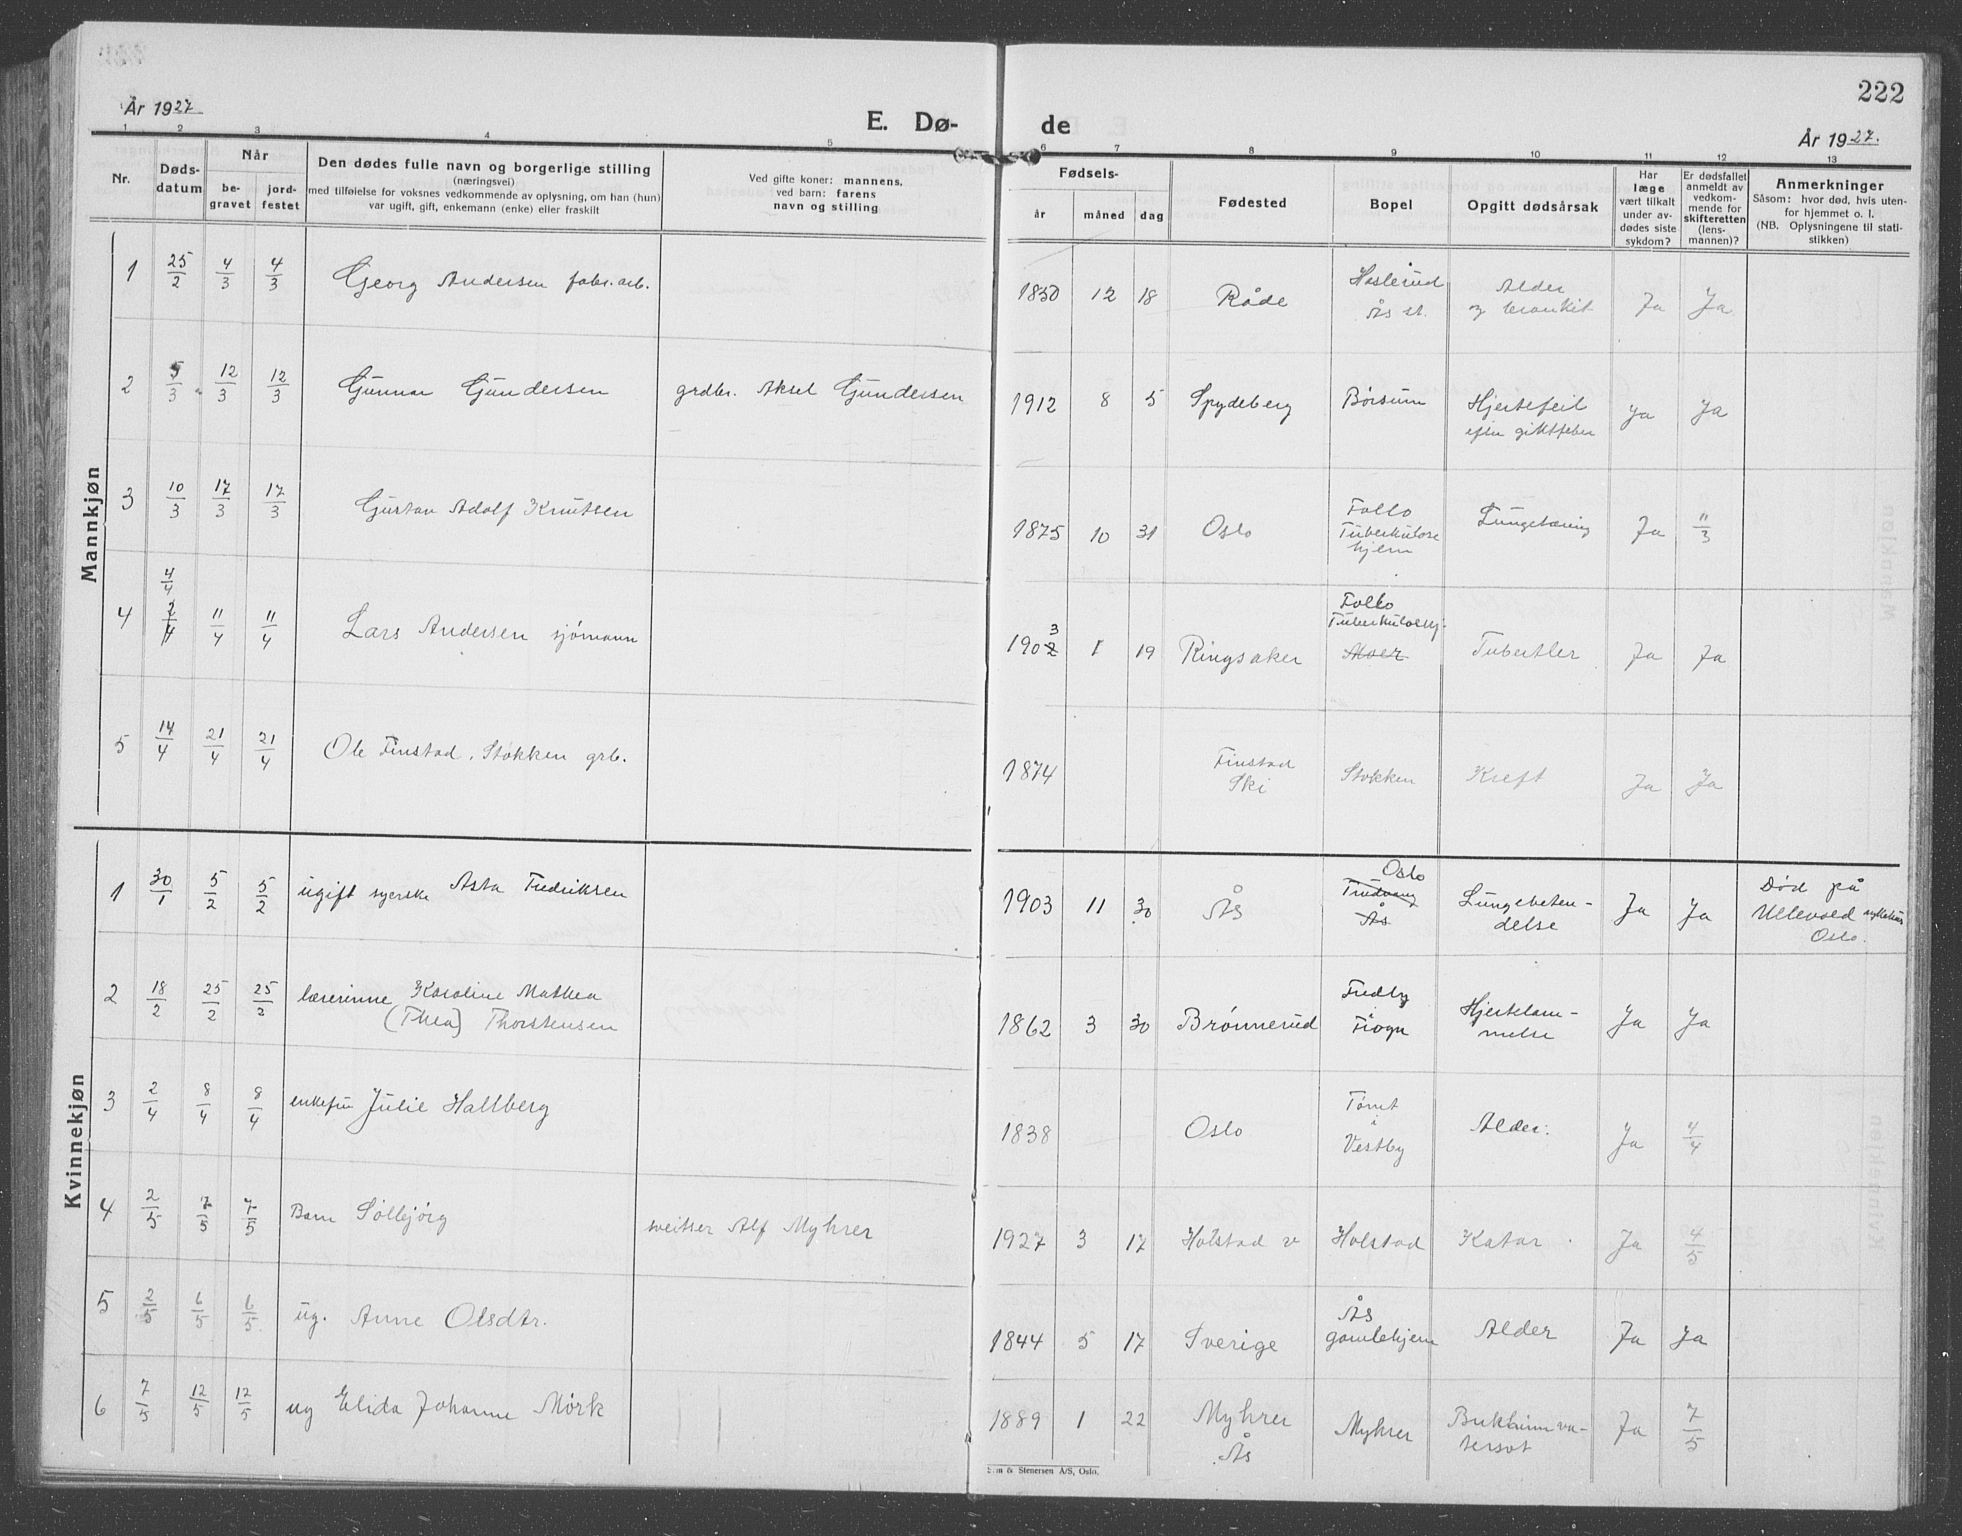 222
År 1927
E. Dø-
de
År 1927.
1 2 3 4 5 6 7 8 9 10 11 12 13
Nr.
Døds-
datum
Når
be-
gravet
jord-
festet
Den dødes fulle navn og borgerlige stilling
(næringsvei)
med tilføielse for voksnes vedkommende av oplysning, om han (hun)
var ugift, gift, enkemann (enke) eller fraskilt
Ved gifte koner: mannens,
ved barn: farens
navn og stilling
Fødsels-
år måned dag
Fødested
Bopel
Opgitt dødsårsak
Har
læge
vært tilkalt
under av-
dødes siste
sykdom?
Er dødsfallet
anmeldt av
vedkom-
mende for
skifteretten
(lens-
mannen)?
Anmerkninger
Såsom: hvor død, hvis uten-
for hjemmet o. l.
(NB. Oplysningene til stati-
stikken)
Mannkjøn
1 25/2 4/3 4/3 Georg Andersen fabr. arb. 1850 12 18 Råde Haslerud Alder Ja Ja
Ås st. og bronkit
2 5/3 12/3 12/3 Gunnar Gundersen grdbr. Aksel Gundersen 1912 8 5 Spydeberg Børsum Hjertefeil Ja Ja
efter giktfeber
3 10/3 17/3 17/3 Gustav Adolf Knutsen 1875 10 31 Oslo Follo Lungetæring Ja 11/3
Tuberkulose
hjem
4/4
4 2/4 11/4 11/4 Lars Andersen sjømann 1902 3 1 19 Ringsaker Follo
Tuberkulosehj.
Moer Tuberkler Ja Ja
5 14/4 21/4 21/4 Ole Finstad, Stokken grb. 1874 Finstad Stokken Kreft Ja Ja
Ski
Kvinnekjøn
1 30/1 5/2 5/2 ugift syerske Asta Fredriksen 1903 11 30 Ås Oslo Lungebeten- Ja Ja Død på
Ås delse Ullevold sykehus
Oslo.
2 18/2 25/2 25/2 lærerinne Karoline Mathea 1862 3 30 Brønnerud Fredly Hjertelam- Ja Ja
(Thea) Thorstensen i Frogn melse
3 2/4 8/4 8/4 enkefru Julie Hallberg 1838 Oslo Tomt Alder. Ja 4/4
i
Vestby
4 2/5 7/5 7/5 Barn Sollbjörg sveitser Alf Myhrer 1927 3 17 Holstad v Holstad Katar. Ja 4/5
5 2/5 6/5 6/5 ug. Anne Olsdtr. 1844 5 17 Sverige Ås Alder Ja Ja
gamlehjem
6 7/5 12/5 12/5 ug Elida Johanne Mørk 1889 1 22 Myhrer Myhrer Bukhinneva- Ja 7/5
Ås tersot
& Stenersen A/S, Oslo.